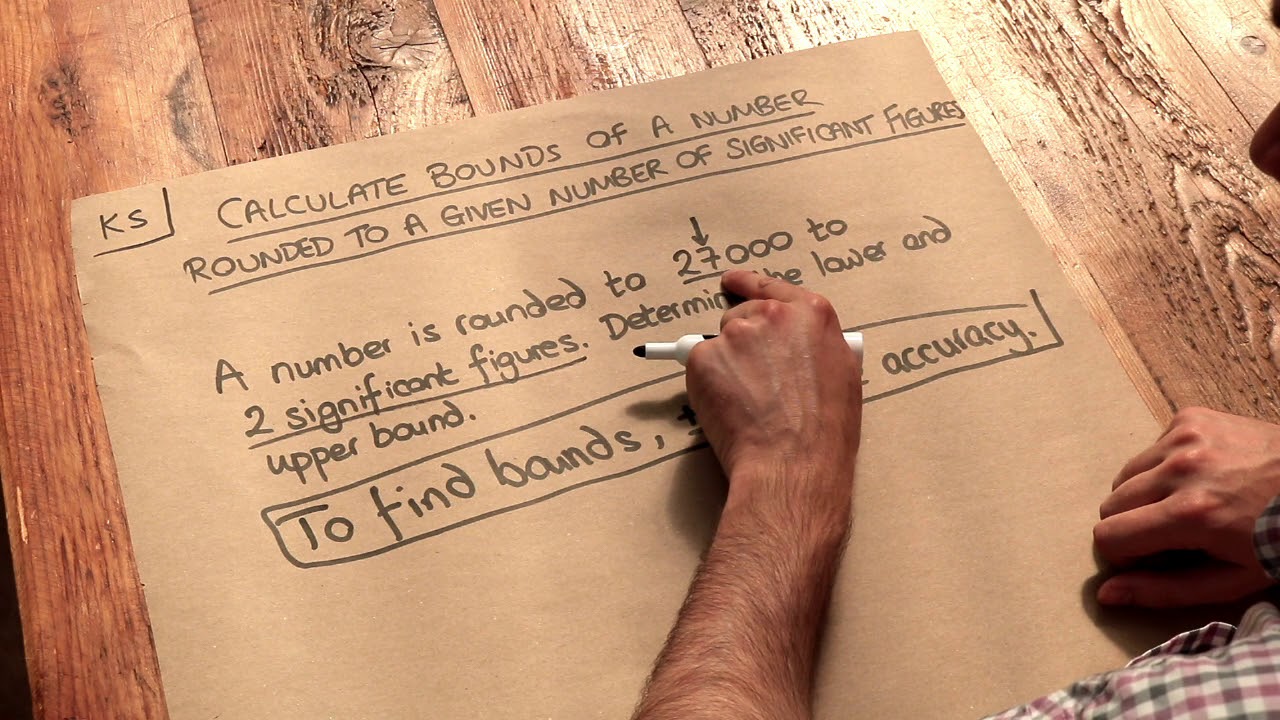 KS
CALCULATE BOUNDS OF A NUMBER
ROUNDED TO A GIVEN NUMBER OF SIGNIFICANT FIGURES
A number is rounded to 27000 to
2 significant figures. Determine the lower and
upper bound.
To find bounds, accuracy.